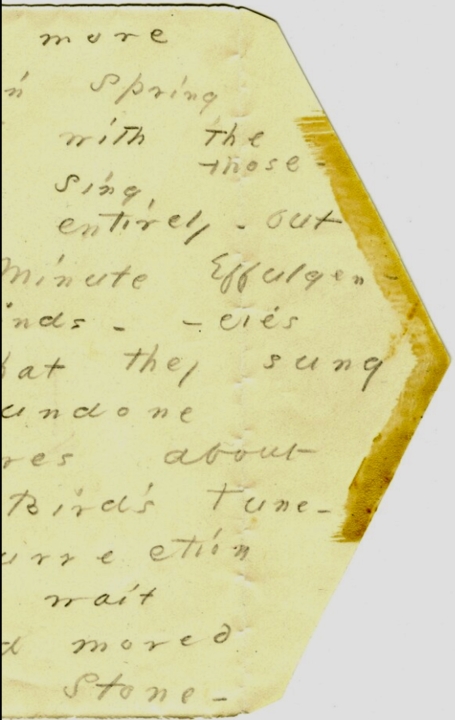 more
n Spring
with the
those -
Sing
entirely - out
Minute Effulgen -
nds - - cies
hat they sung
undone
res about
Bird's Tune -
urrection
wait
d moved
Stone -